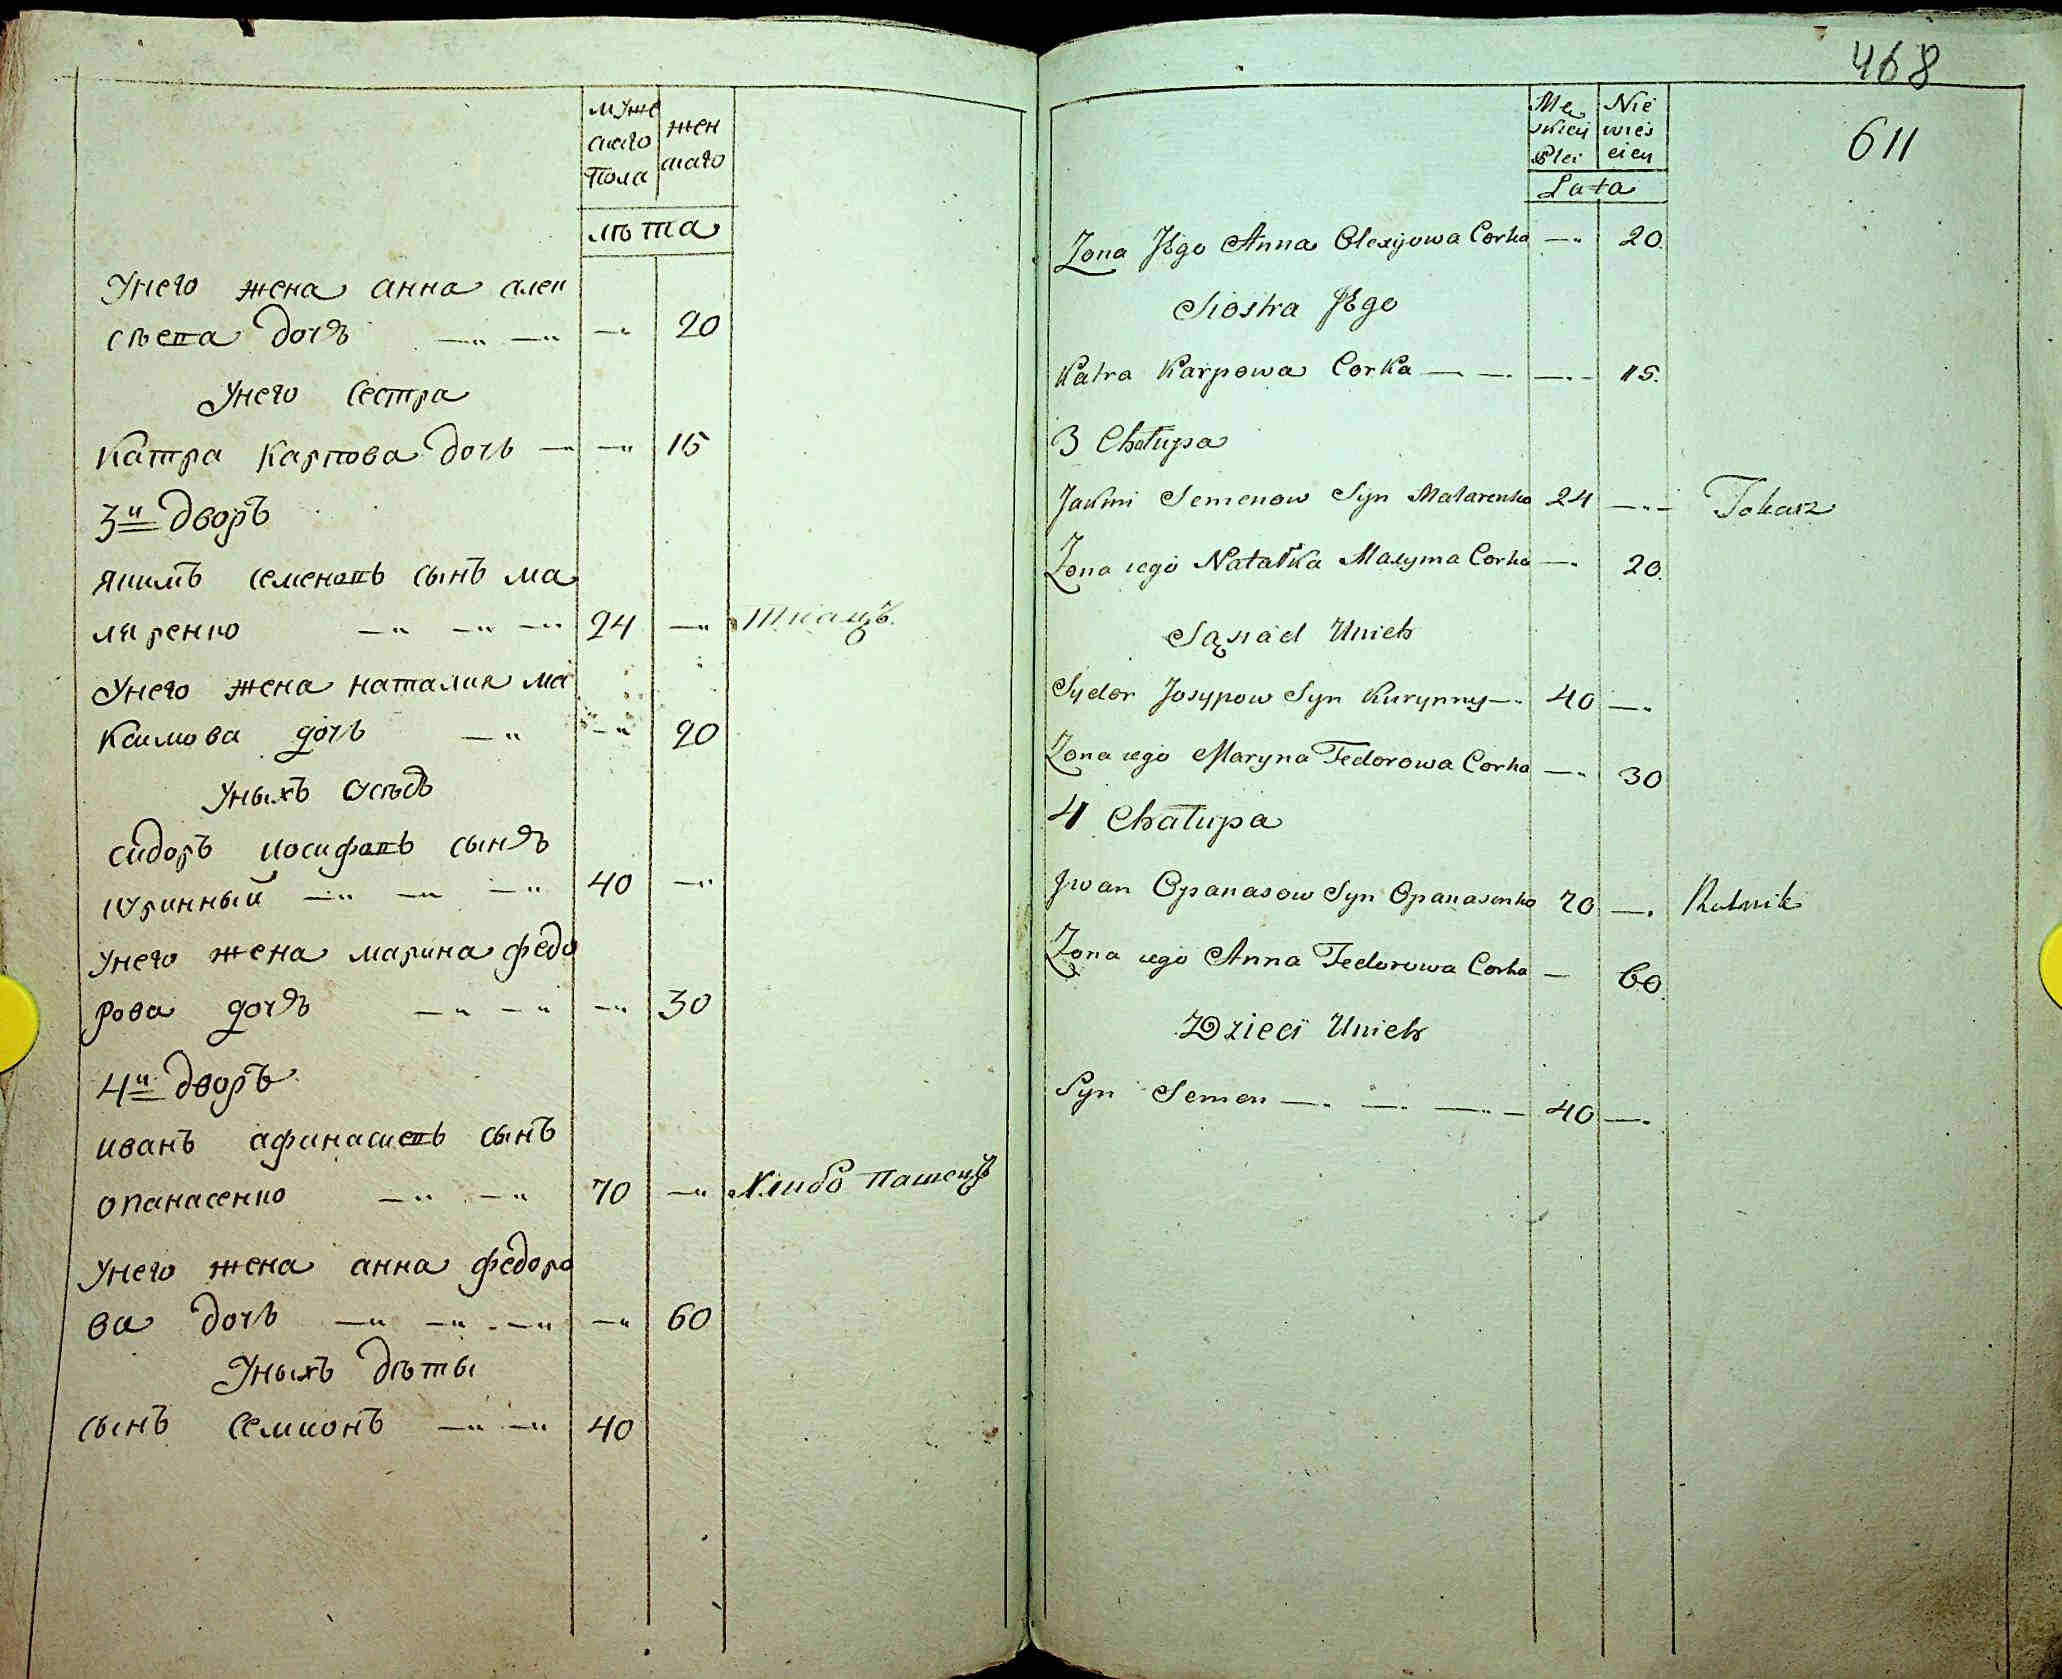 муже
скаго
пола
жен
скаго
лѣта
Унего жена анна алек
сѣева дочь —„ —„ —„ 20
Унего сестра
Катра Карпова дочь —„ —„ 15
3й дворъ
якимъ семеновъ сынъ ма
ляренко —„ —„ —„ 24 —„ Ткацъ
Унего жена наталия ма
ксимова дочь —„ —„ 20
Уныхъ сусѣдъ
сидоръ иосифовъ сынъ
куринный —„ —„ —„ 40 —„
Унего жена марина федо
рова дочь —„ —„ —„ 30
4й дворъ
иванъ афанасиевъ сынъ
опанасенко —„ —„ 70 —„ Хлибо пашецъ
Унего жена анна федоро
ва дочь —„ —„ —„ —„ 60
Уныхъ дѣты
сынъ Семионъ —„ —„ 40
468
611
Mę
skiey
Płci
Nie
wies
ciey
Lata
Żona JEgo Anna Olexijowa Corka —„ 20.
Siostra JEgo
Katra Karpowa Corka —. —. —.– 15.
3 Chałupa
Jakim Semenow Syn Malarenko 24 —.– Tokarz
Żona iego Natałka Maxyma Corka —. 20.
Sąsiad Unich
Sydor Josypow Syn Kurynny —. 40 —.
Żona iego Maryna Fedorowa Corka —„ 30
4 Chałupa
Jwan Opanasow Syn Opanasenko 70 —. Rolnik
Żona iego Anna Fedorowa Corka — 60.
Dzieci Unich
Syn Semen —. —. —.– 40 —.